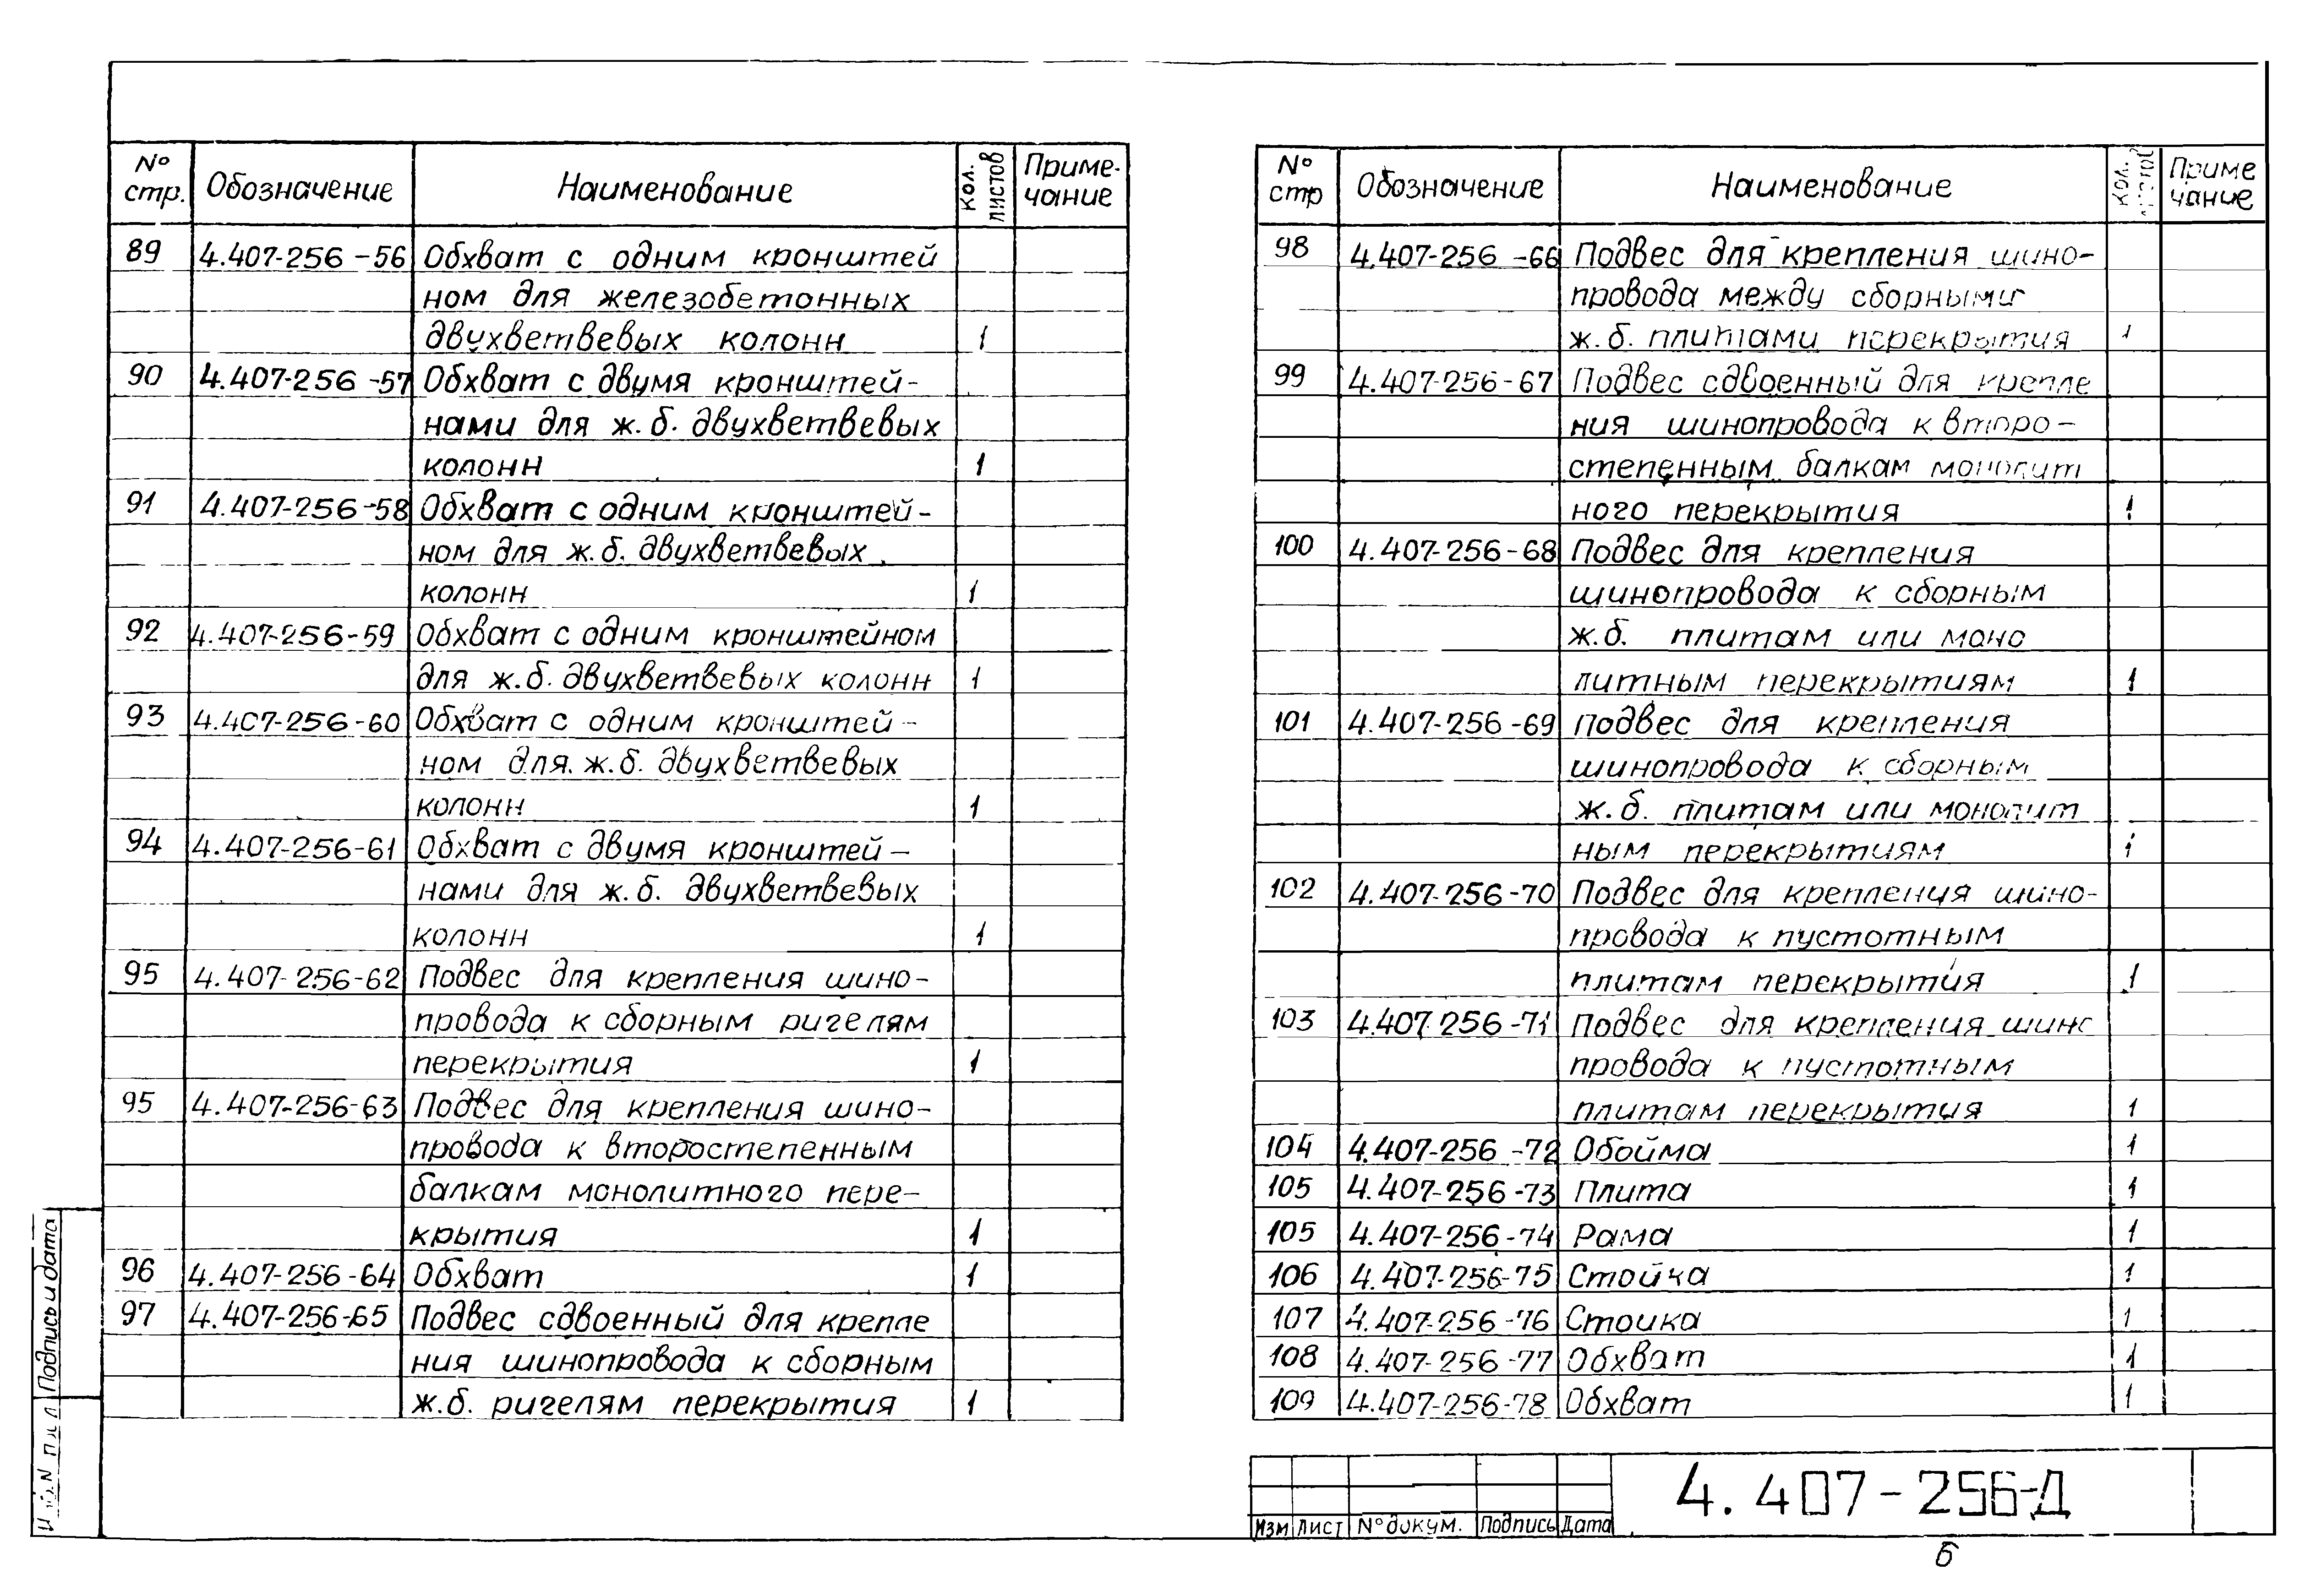 № стр. Обозначение Наименование кол. листов Приме- чание
89 4.407-256-56 Обхват с одним кронштей
ном для железобетонных
двухветвевых колонн 1
90 4.407-256-57 Обхват с двумя кронштей-
нами для ж.б. двухветвевых
колонн 1
91 4.407-256-58 Обхват с одним кронштей-
ном для ж.б. двухветвевых
колонн 1
92 4.407-256-59 Обхват с одним кронштейном
для ж.б. двухветвевых колонн 1
93 4.407-256-60 Обхват с одним кронштей-
ном для ж.б. двухветвевых
колонн 1
94 4.407-256-61 Обхват с двумя кронштей-
нами для ж.б. двухветвевых
колонн 1
95 4.407-256-62 Подвес для крепления шино-
провода к сборным ригелям
перекрытия 1
95 4.407-256-63 Подвес для крепления шино-
провода к второстепенным
балкам монолитного пере-
крытия 1
96 4.407-256-64 Обхват 1
97 4.407-256-65 Подвес сдвоенный для крепле
ния шинопровода к сборным
ж.б. ригелям перекрытия 1
№ стр Обозначение Наименование кол. Приме чание
98 4.407-256-66 Подвес для крепления шино-
провода между сборными
ж.б. плитами перекрытия 1
99 4.407-256-67 Подвес сдвоенный для крепле
ния шинопровода к второ-
степенным балкам монолит
ного перекрытия 1
100 4.407-256-68 Подвес для крепления
шинопровода к сборным
ж.б. плитам или моно
литным перекрытиям 1
101 4.407-256-69 Подвес для крепления
шинопровода к сборным
ж.б. плитам или монолит
ным перекрытиям 1
102 4.407-256-70 Подвес для крепления шино-
провода к пустотным
плитам перекрытия 1
103 4.407-256-71 Подвес для крепления шино
провода к пустотным
плитам перекрытия 1
104 4.407-256-72 Обойма 1
105 4.407-256-73 Плита 1
105 4.407-256-74 Рама 1
106 4.407-256-75 Стойка 1
107 4.407-256-76 Стойка 1
108 4.407-256-77 Обхват 1
109 4.407-256-78 Обхват 1
Подпись и дата
Инв.N подл
Изм Лист № докум. Подпись Дата
4.407-256-Д
6